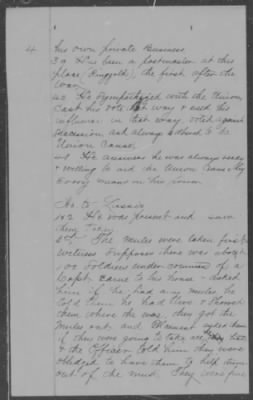 4 his own private business
39 Has been a postmaster at this
place (Ringgold), the first after the
War
40 He sympathized with the Union
Cast his vote that way & used his
influence in that way, voted against
Secession and always adhered to the
Union Cause.
41 He answers he was always ready
& willing to aid the Union Cause by
Every means in his power.
As to Taking
142 He was present and saw
them taken
5th The mules were taken first
Witness supposes there was about
100 Soldiers under command of a
Capt. came to his house - asked
him if he had any mules, he
told them he had two & showed
them where she was, they got the
mules out and Claimant asked them
if they were going to take
& the officer told him they were
obliged to have them to help them
out of the mud. They were fine